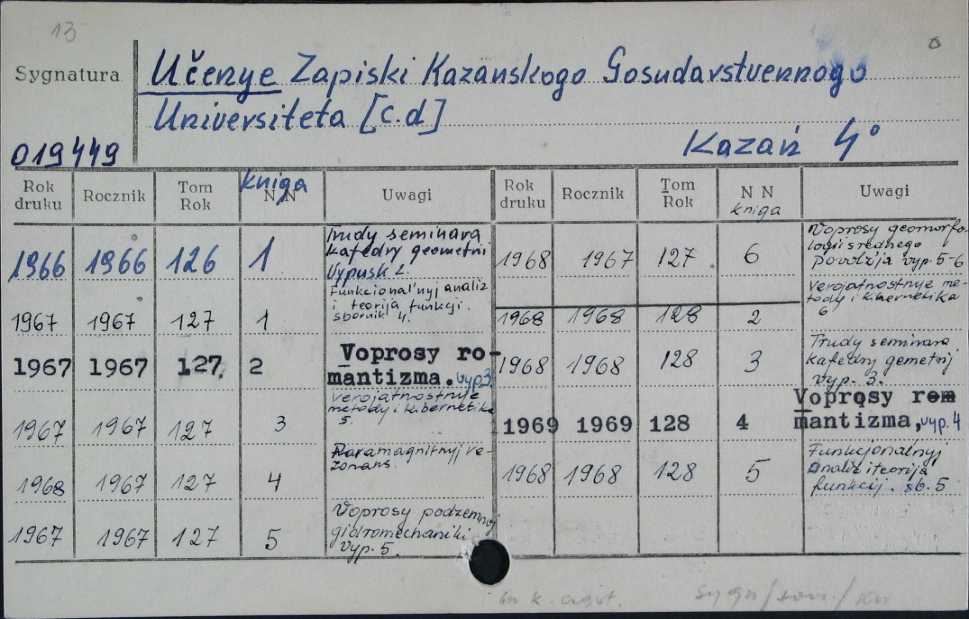 13
Sygnatura
Učenye Zapiski Kazanskogo Gosudarstvennogo
Universiteta [c.d]
019449
Kazań 4°
Rok druku Rocznik Tom Rok kniga N N Uwagi
1966 1966 126 1 Trudy seminara
kafedry geometrii
Vypusk 2.
1967 1967 127 1 Funkcional'nyj analiz
i teorija funkcji.
sbornik 4.
1967 1967 127. 2 Voprosy ro-
mantizma. vyp3
1967 1967 127 3 Verojatnostnye
metody i kibernetika
5.
1968 1967 127 4 Paramagnitnyj re-
zonans.
1967 1967 127 5 Voprosy podzemnoj
gidromechaniki
Vyp. 5.
Rok druku Rocznik Tom Rok N N kniga Uwagi
1968 1967 127 6 Voprosy geomorfo-
logii srednego
povolžja vyp. 5-6
1968 1968 128 2 Verojatnostnye me-
tody i kibernetika
6
1968 1968 128 3 Trudy seminara
kafedry gemetrij
vyp. 3.
1969 1969 128 4 Voprosy rom
mantizma, vyp. 4
1968 1968 128 5 Funkcjonalnyj
analiz i teorija
funkcij. sb. 5